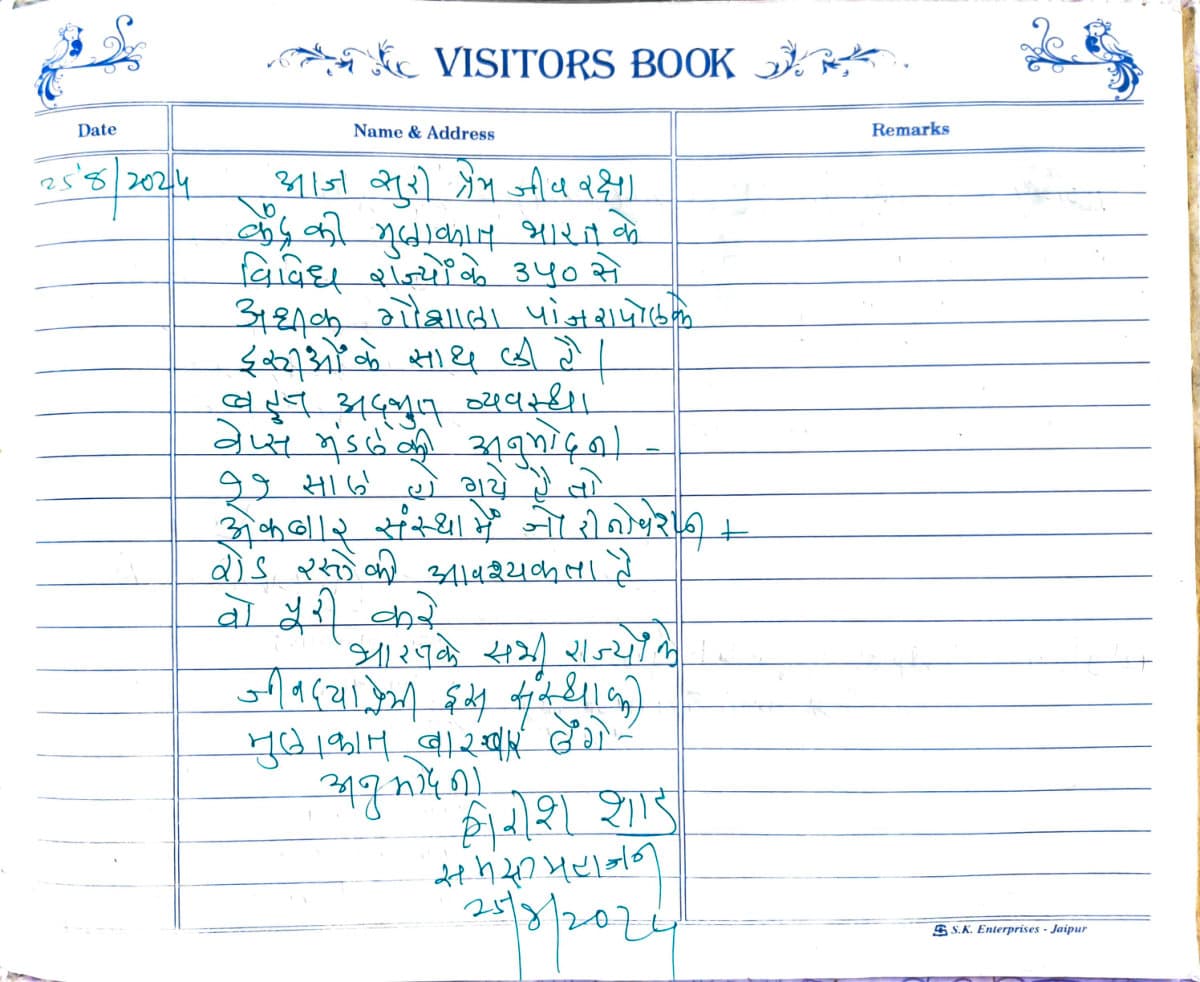 VISITORS BOOK
Date Name & Address Remarks
25/8/2024 आज सुरी प्रेम जीव रक्षा
केंद्र की मुलाकात भारत के
विविध राज्योंके ३५० से
अधीक गौशाला पांजरापोलके
ट्रस्टीओंके साथ की है।
बहुत अद्भुत व्यवस्था
मंडलकी अनुमोदना -
११ साल हो गये है तो
अेकबार संस्थामें जो रीनोवेशन +
रोड रस्तेकी आवश्यकता है
वो पूरी करे
भारतके सभी राज्योंके
जीवदयाप्रेमी इस संस्थाकी
मुलाकात बारबार लेंगे -
अनुमोदना
गिरीश शाह
समस्त महाजन
25/8/2024
S.K. Enterprises - Jaipur